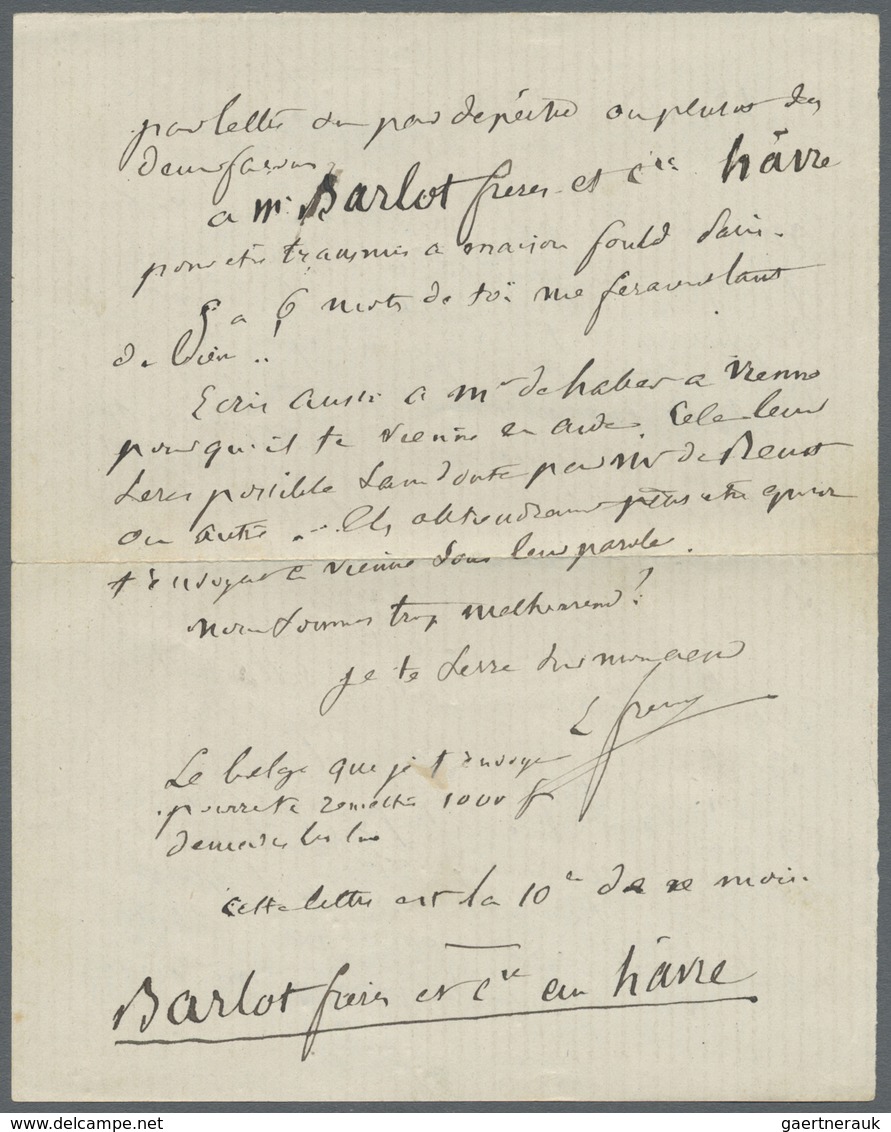 par lettre ou par depêche ou plutot des
deux façons
a Mr Barlot freres et Cie hâvre
pour etre transmis a maison fould Paris.
5 a 6 mots de toi me feraient tant
de bien !!
Ecris aussi a Mr de haber a vienne
pour qu'il te vienne en aide. Cela leur
sera possible sans doute par Mr de Beust
ou autre ... Ils obtiendront peut etre qu'on
t'envoye a vienne sous leur parole.
nous sommes trop malheureux !
je te serre sur mon coeur
L fremy
Le belge que je t'envoye
pourra te remettre 1000 f
demandes les lui
cette lettre est la 10e de ce mois.
Barlot freres et Cie au hâvre
gaertnerauk